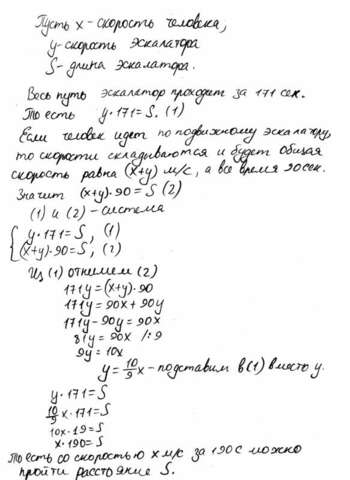 Пусть x - скорость человека,
y - скорость эскалатора
S - длина эскалатора.
Весь путь эскалатор проходит за 171 сек.
То есть y·171=S. (1)
Если человек идет по подвижному эскалатору,
то скорости складываются и будет общая
скорость равна (x+y) м/с, а все время 90 сек.
Значит (x+y)·90=S (2)
(1) и (2) - система
{ y·171=S, (1)
(x+y)·90=S, (2)
Из (1) отнимем (2)
171y=(x+y)·90
171y=90x+90y
171y-90y=90x
81y=90x /:9
9y=10x
y=10/9x - подставим в (1) вместо y.
y·171=S
10/9x·171=S
10x·19=S
x·190=S
То есть со скоростью x м/с за 190 с можно
пройти расстояние S.